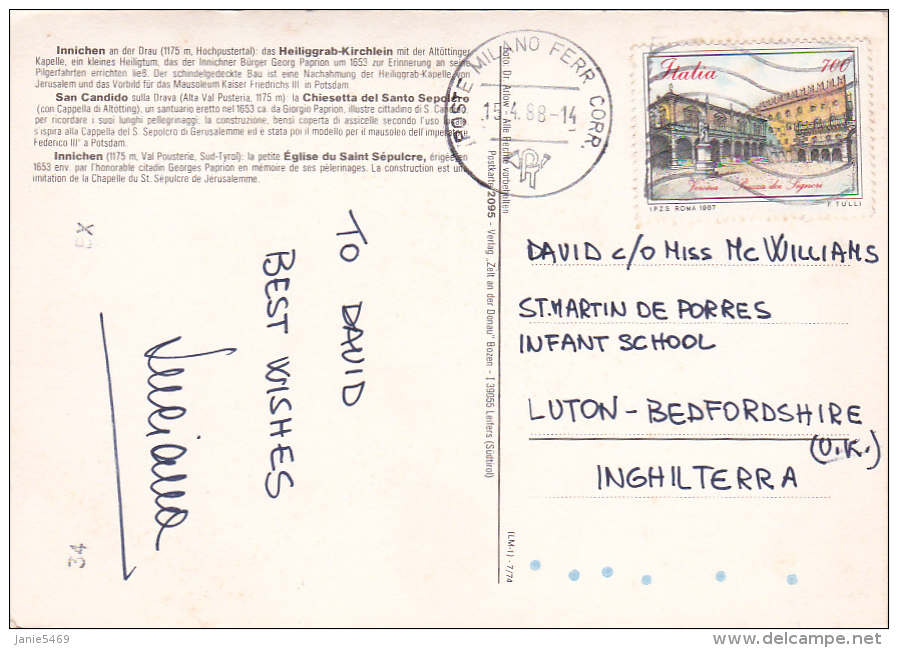 Innichen an der Drau (1175 m, Hochpustertal): das Heiliggrab-Kirchlein mit der Altöttinger
Kapelle, ein kleines Heiligtum, das der Innichner Bürger Georg Paprion um 1653 zur Erinnerung an seine
Pilgerfahrten errichten ließ. Der schindelgedeckte Bau ist eine Nachahmung der Heiliggrab-Kapelle von
Jerusalem und das Vorbild für das Mausoleum Kaiser Friedrichs III in Potsdam.
San Candido sulla Drava (Alta Val Pusteria, 1175 m): la Chiesetta del Santo Sepolcro
(con Cappella di Altötting), un santuario eretto nel 1653 ca. da Giorgio Paprion, illustre cittadino di S. Candido,
per ricordare i suoi lunghi pellegrinaggi. la construzione, bensì coperta di assicelle secondo l'uso locale,
s'ispira alla Cappella del S. Sepolcro di Gerusalemme ed è stata poi il modello per il mausoleo dell'imperatore
Federico III° a Potsdam.
Innichen (1175 m, Val Pousterie, Sud-Tyrol): la petite Église du Saint Sépulcre, érigée en
1653 env. par l'honorable citadin Georges Paprion en mémoire de ses pèlerinages. La construction est une
imitation de la Chapelle du St. Sépulcre de Jérusalemme.
TO DAVID
BEST WISHES
EX
34
Alle Rechte vorbehalten
Postkarte 2095 - Verlag „Zelt an der Donau" Bozen - I 39055 Leifers (Südtirol)
(LM-1) - 7/74
POSTE MILANO FERR. CORR.
15.4.88-14
PT
Italia 700
Verona Piazza dei Signori
I.P.Z.S. ROMA 1987 F. TULLI
DAVID c/o MISS MC WILLIAMS
ST. MARTIN DE PORRES
INFANT SCHOOL
LUTON - BEDFORDSHIRE
(U.K.)
INGHILTERRA
Janie5469
www.delcampe.net